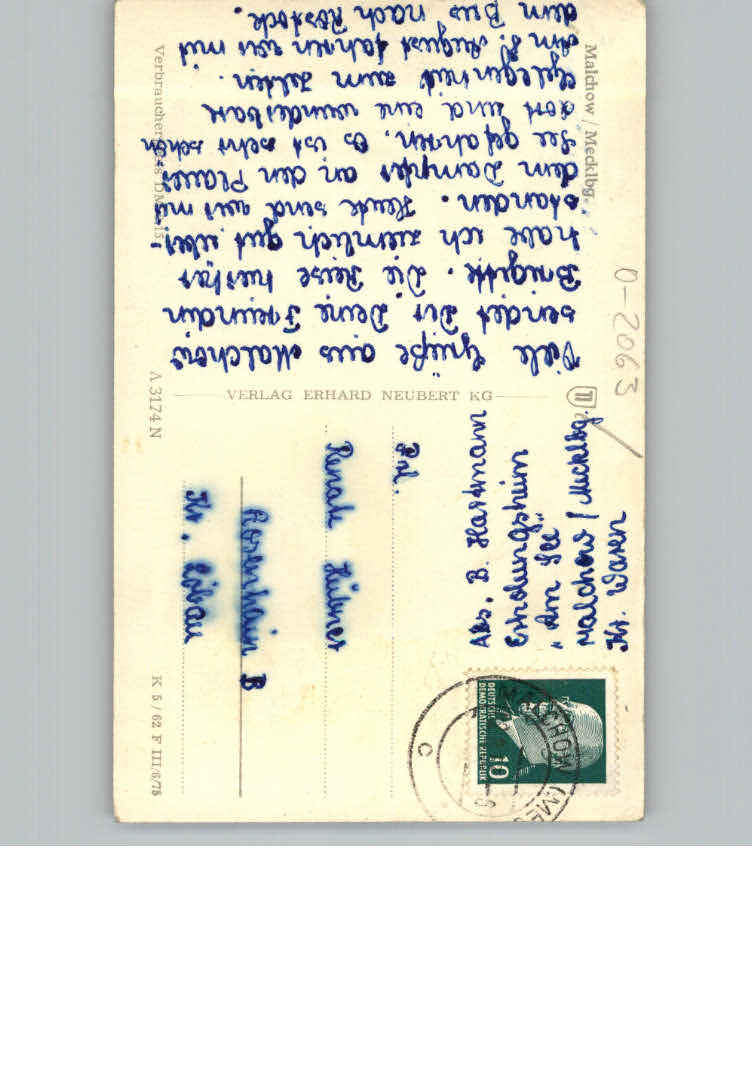 Malchow / Mecklbg.
Viele Grüße aus Malchow
sendet Dir Deine Freundin
Brigitte. Die Reise hierher
habe ich ziemlich gut über-
standen. Heute sind wir mit
dem Dampfer an den Plauer
See gefahren. Es ist sehr schön
dort und eine wunderbare
Gelegenheit zum
Am 8. August fahren wir mit
dem Bus nach Rostock.
VERLAG ERHARD NEUBERT KG
A 3174 N
0-2063
Abs. B. Hartmann
Erholungsheim
"Am See"
Malchow / Mecklbg.
Kr. Waren
Frl.
Renate Hübner
Rosenhain B
Kr. Löbau
K 5 / 62 F III/6/78
DEUTSCHE
DEMOKRATISCHE REPUBLIK
10
MALCHOW (ME
c